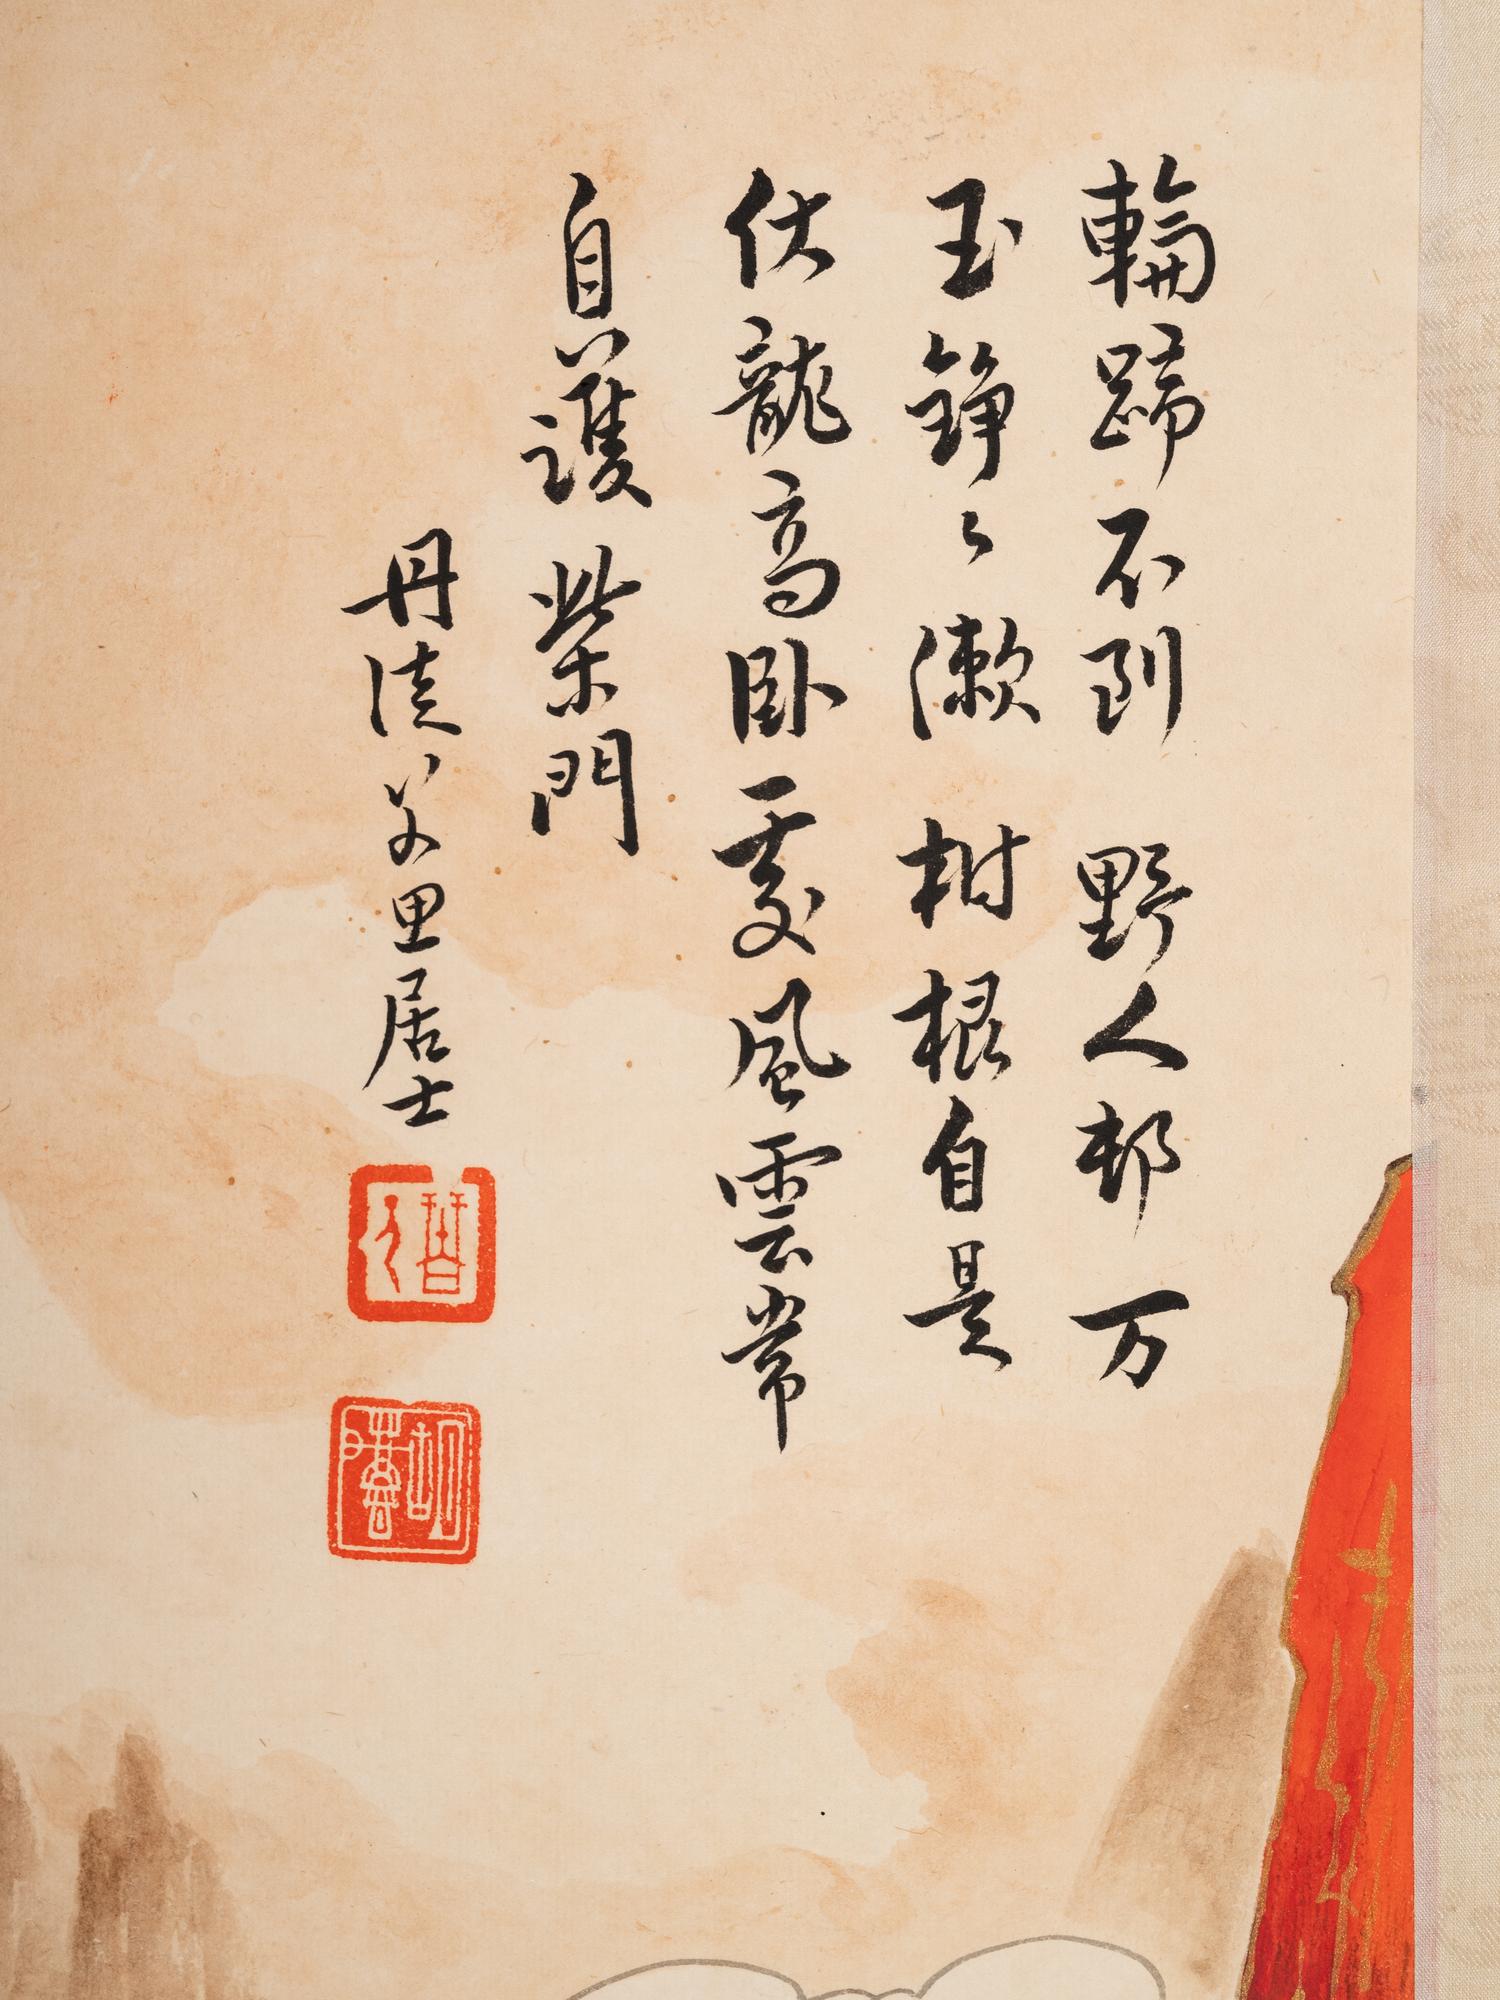 輪蹄不到野人邨万
玉錚々漱樹根自是
伏龍高卧處風雲常
自護柴門
丹徒万里居士